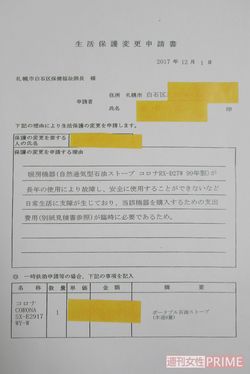 生活保護変更申請書
2017年 12月 1日
札幌市白石区保健福祉部長 様
申請者
住所 札幌市 白石区
氏名
印
下記の理由により生活保護の変更を申請します。
保護の変更を要する人の氏名
保護の変更を申請する理由
暖房機器(自然通気型石油ストーブ コロナRX-D27W 90年型)が
長年の使用により故障し、安全に使用することができないなど
日常生活に支障が生じており、当該機器を購入するための支出
費用(別紙見積書参照)が臨時に必要であるため。
※ 一時扶助申請等の場合、下記の事項を記入
名称 数量 単価 金額
コロナ
CORONA
SX-E2917
WY-W
1
ポータブル石油ストーブ
(木造8畳)
週刊女性PRIME